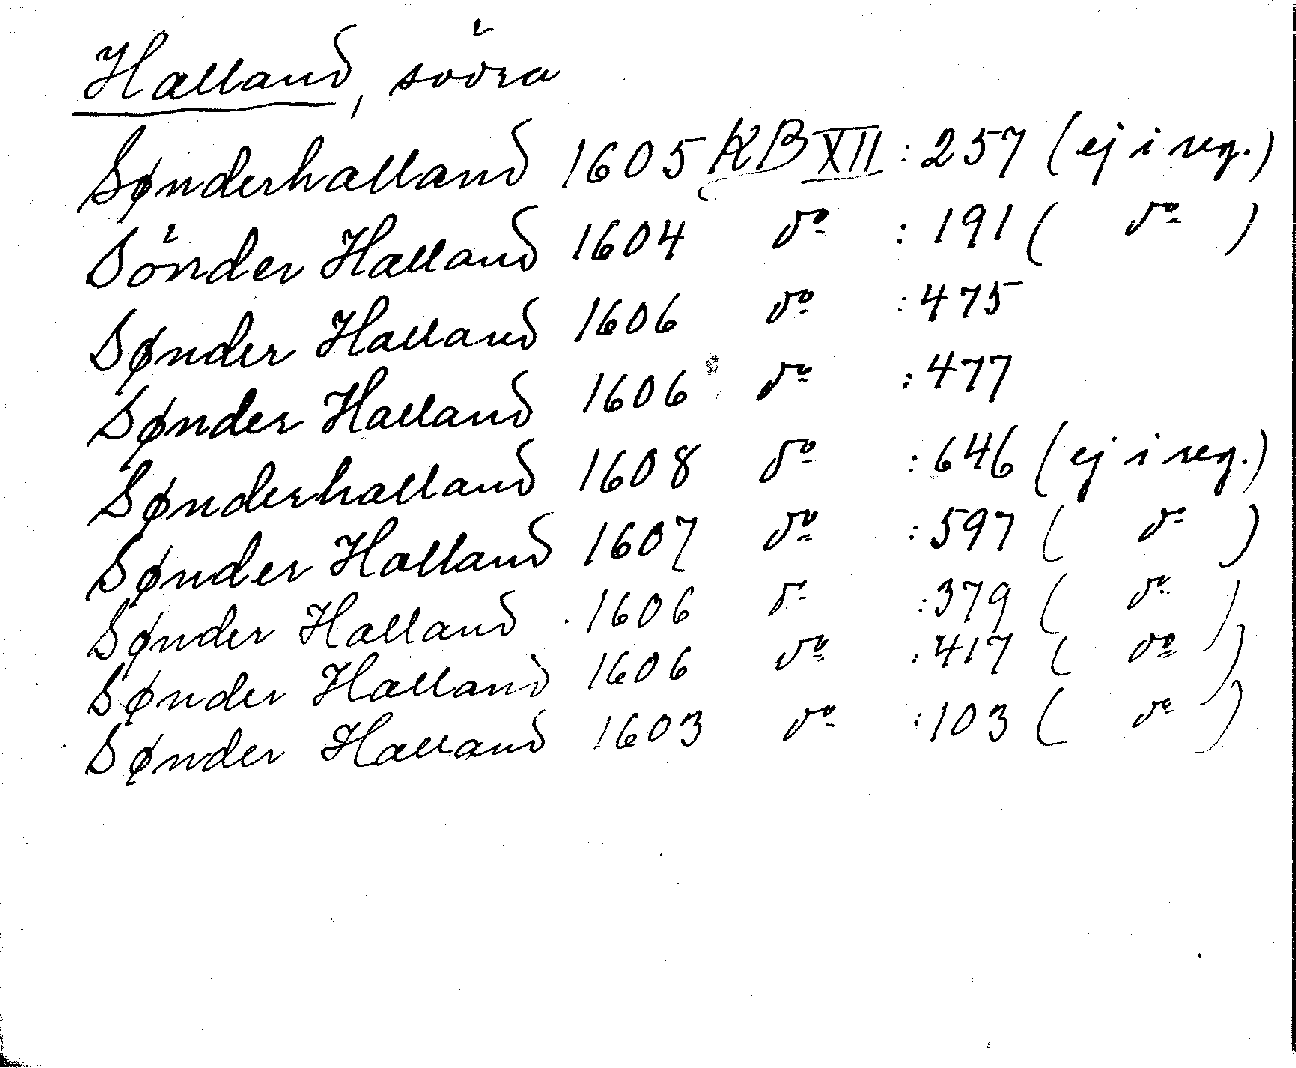 Halland, södra
Sønderhalland 1605 KB XII : 257 (ej i reg.)
Sönder Halland 1604 do : 191 ( do )
Sønder Halland 1606 do : 475
Sønder Halland 1606 do : 477
Sønderhalland 1608 do : 646 (ej i reg.)
Sønder Halland 1607 do : 597 ( do )
Sønder Halland 1606 do : 379 ( do )
Sønder Halland 1606 do : 417 ( do )
Sønder Halland 1603 do : 103 ( do )